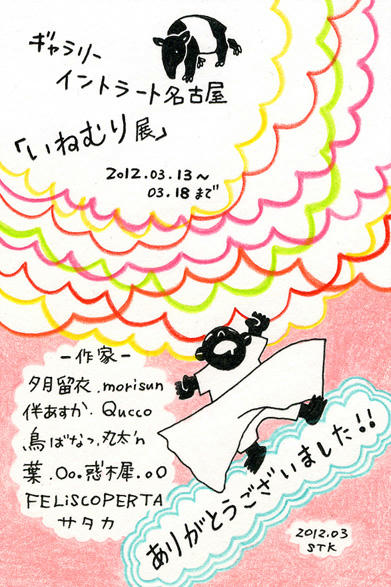 ギャラリー
イントラート名古屋
「いねむり展」
2012.03.13〜
03.18まで
ー作家ー
夕月留衣.morisun
伴あすか.Qucco
鳥ばなっ.丸太'n
葉.Oo.惑木犀.oO
FELiSCOPERTA
サタカ
ありがとうございました!!
2012.03
STK